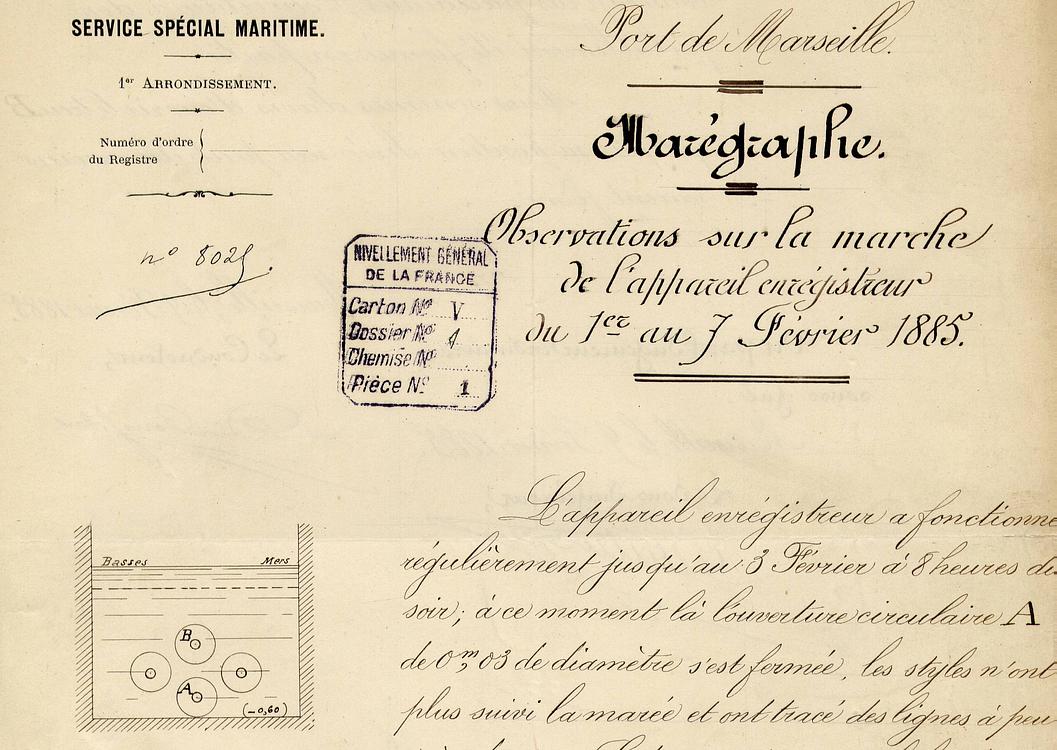 SERVICE SPÉCIAL MARITIME.
1er ARRONDISSEMENT.
Numéro d'ordre
du Registre
n° 8025
NIVELLEMENT GÉNÉRAL
DE LA FRANCE
Carton No V
Dossier No
Chemise No
Pièce No 1
Port de Marseille.
Marégraphe.
Observations sur la marche
de l'appareil enrégistreur
du 1er au 7 Février 1885.
Basses Mers
B
A
(-0,60)
L'appareil enrégistreur a fonctionné
régulièrement jusqu'au 3 Février à 8 heures du
soir; à ce moment là l'ouverture circulaire A
de 0m,03 de diamètre s'est fermée, les styles n'ont
plus suivi la marée et ont tracé des lignes à peu